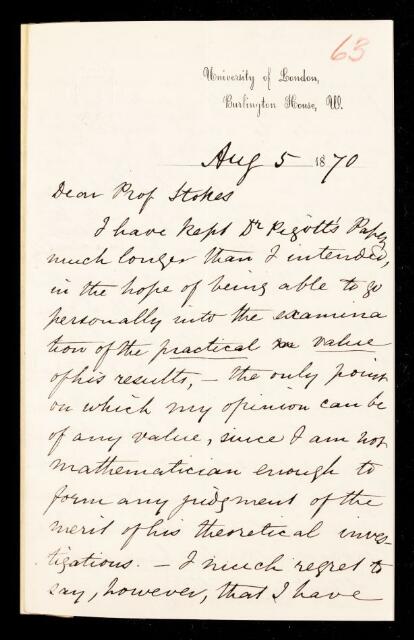 63
University of London,
Burlington House, W.
Aug 5 1870
Dear Prof Stokes
I have kept Dr Pigott's Paper
much longer than I intended,
in the hope of being able to go
personally into the examina
tion of the practical value
of his results, – the only point
on which my opinion can be
of any value, since I am not
mathematician enough to
form any judgment of the
merit of his theoretical inves-
tigations. – I much regret to
say, however, that I have